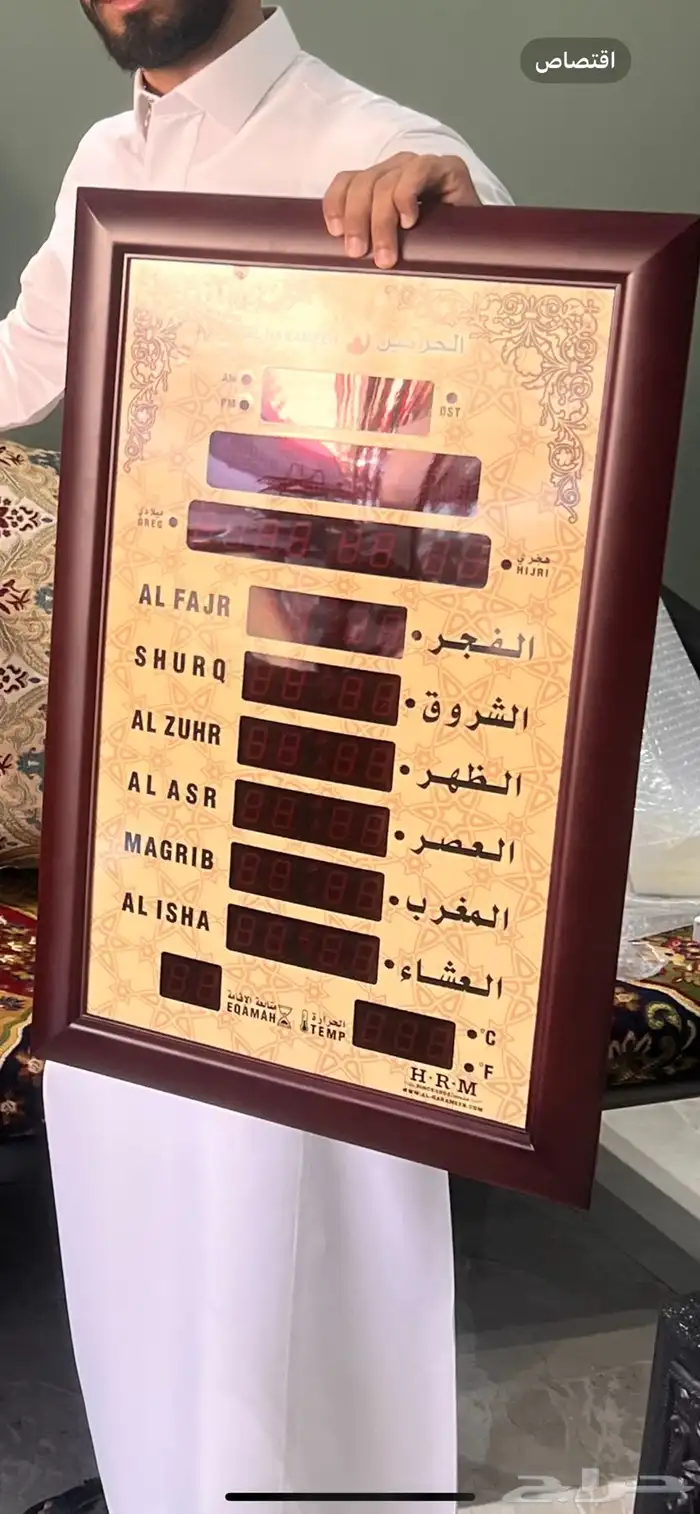 اقتصاص
AL-HARAMEEN الحرمين
AM
PM
DST
ميلادي
GREG
هجري
HIJRI
AL FAJR الفجر
SHURQ الشروق
AL ZUHR الظهر
AL ASR العصر
MAGRIB المغرب
AL ISHA العشاء
متابعة الاقامة
EQAMAH
الحرارة
TEMP
°C
°F
H·R·M
WWW.AL-HARAMEEN.COM
حراج